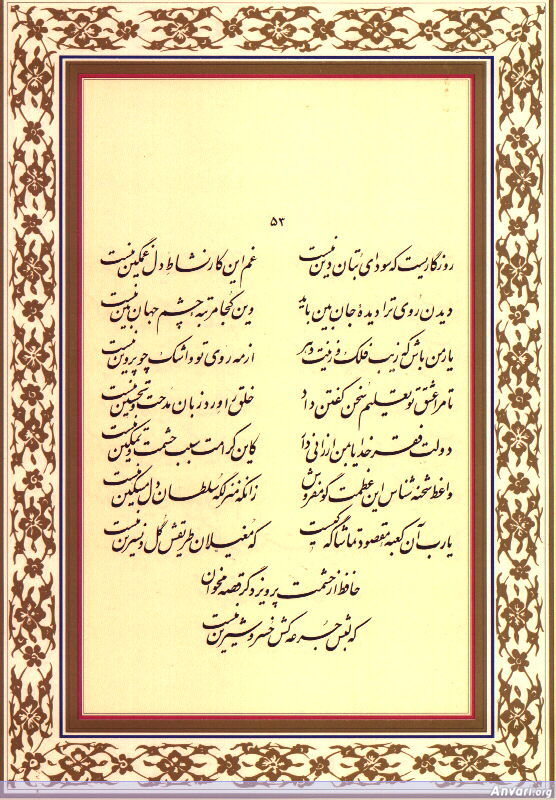 ۵۳
روزگاریست که سودای بتان دین منست غم این کار نشاط دل غمگین منست
دیدن روی ترا دیدهٔ جان بین باید وین کجا مرتبه چشم جهان بین منست
یار من باش که زیب فلک و زینت دهر از مه روی تو و اشک چو پروین منست
تا مرا عشق تو تعلیم سخن گفتن داد خلق را ورد زبان مدحت و تحسین منست
دولت فقر خدایا بمن ارزانی دار کاین کرامت سبب حشمت و تمکین منست
واعظ شحنه شناس این عظمت گو مفروش زانکه منزلگه سلطان دل مسکین منست
یارب آن کعبه مقصود تماشاگه کیست که مغیلان طریقش گل و نسرین منست
حافظ از حشمت پرویز دگر قصه مخوان
که لبش جرعه کش خسرو شیرین منست
Anvari.org